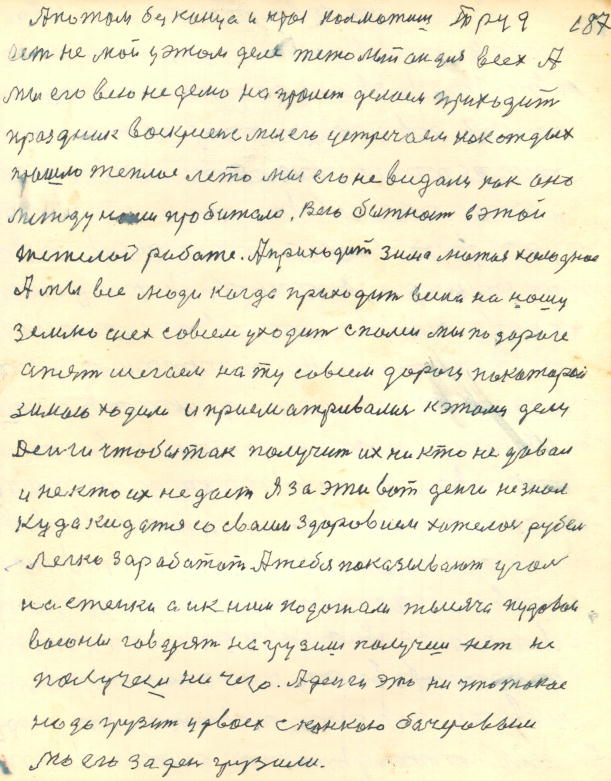 Апотом без конца и края колмотиш Труд 187
ест не мой у этом деле тежолый он для всех А
мы его всю неделю на пролет делаем приходит
праздник воскриене мы его устречаем как отдых
прошло теплое лето мы его не видали как оно
между нами пробижало, Всю бытност в этой
тежелой работе. Априходит зима лютая холодная
А мы все люди когда приходит весна на нашу
землю снех совсем уходит споля мы по дороге
апят шегаем на ту совсем дорогу покаторой
зимою ходили и присматривалис к этому делу
Денги чтобы так получит их никто не давал
и некто их не даст Я за эти вот денги не знал
куда кидатся со своим здоровием хателос рубел
легко заработат Атебя показывают угол
на стенки а ик ним подогнали тысяча пудовои
вагоны говорят нагрузиш получиш нет не
получиш ни чего. Аденги это ни что такое
надо грузит удвоех с конкою бачеровым
мы его за ден грузили.